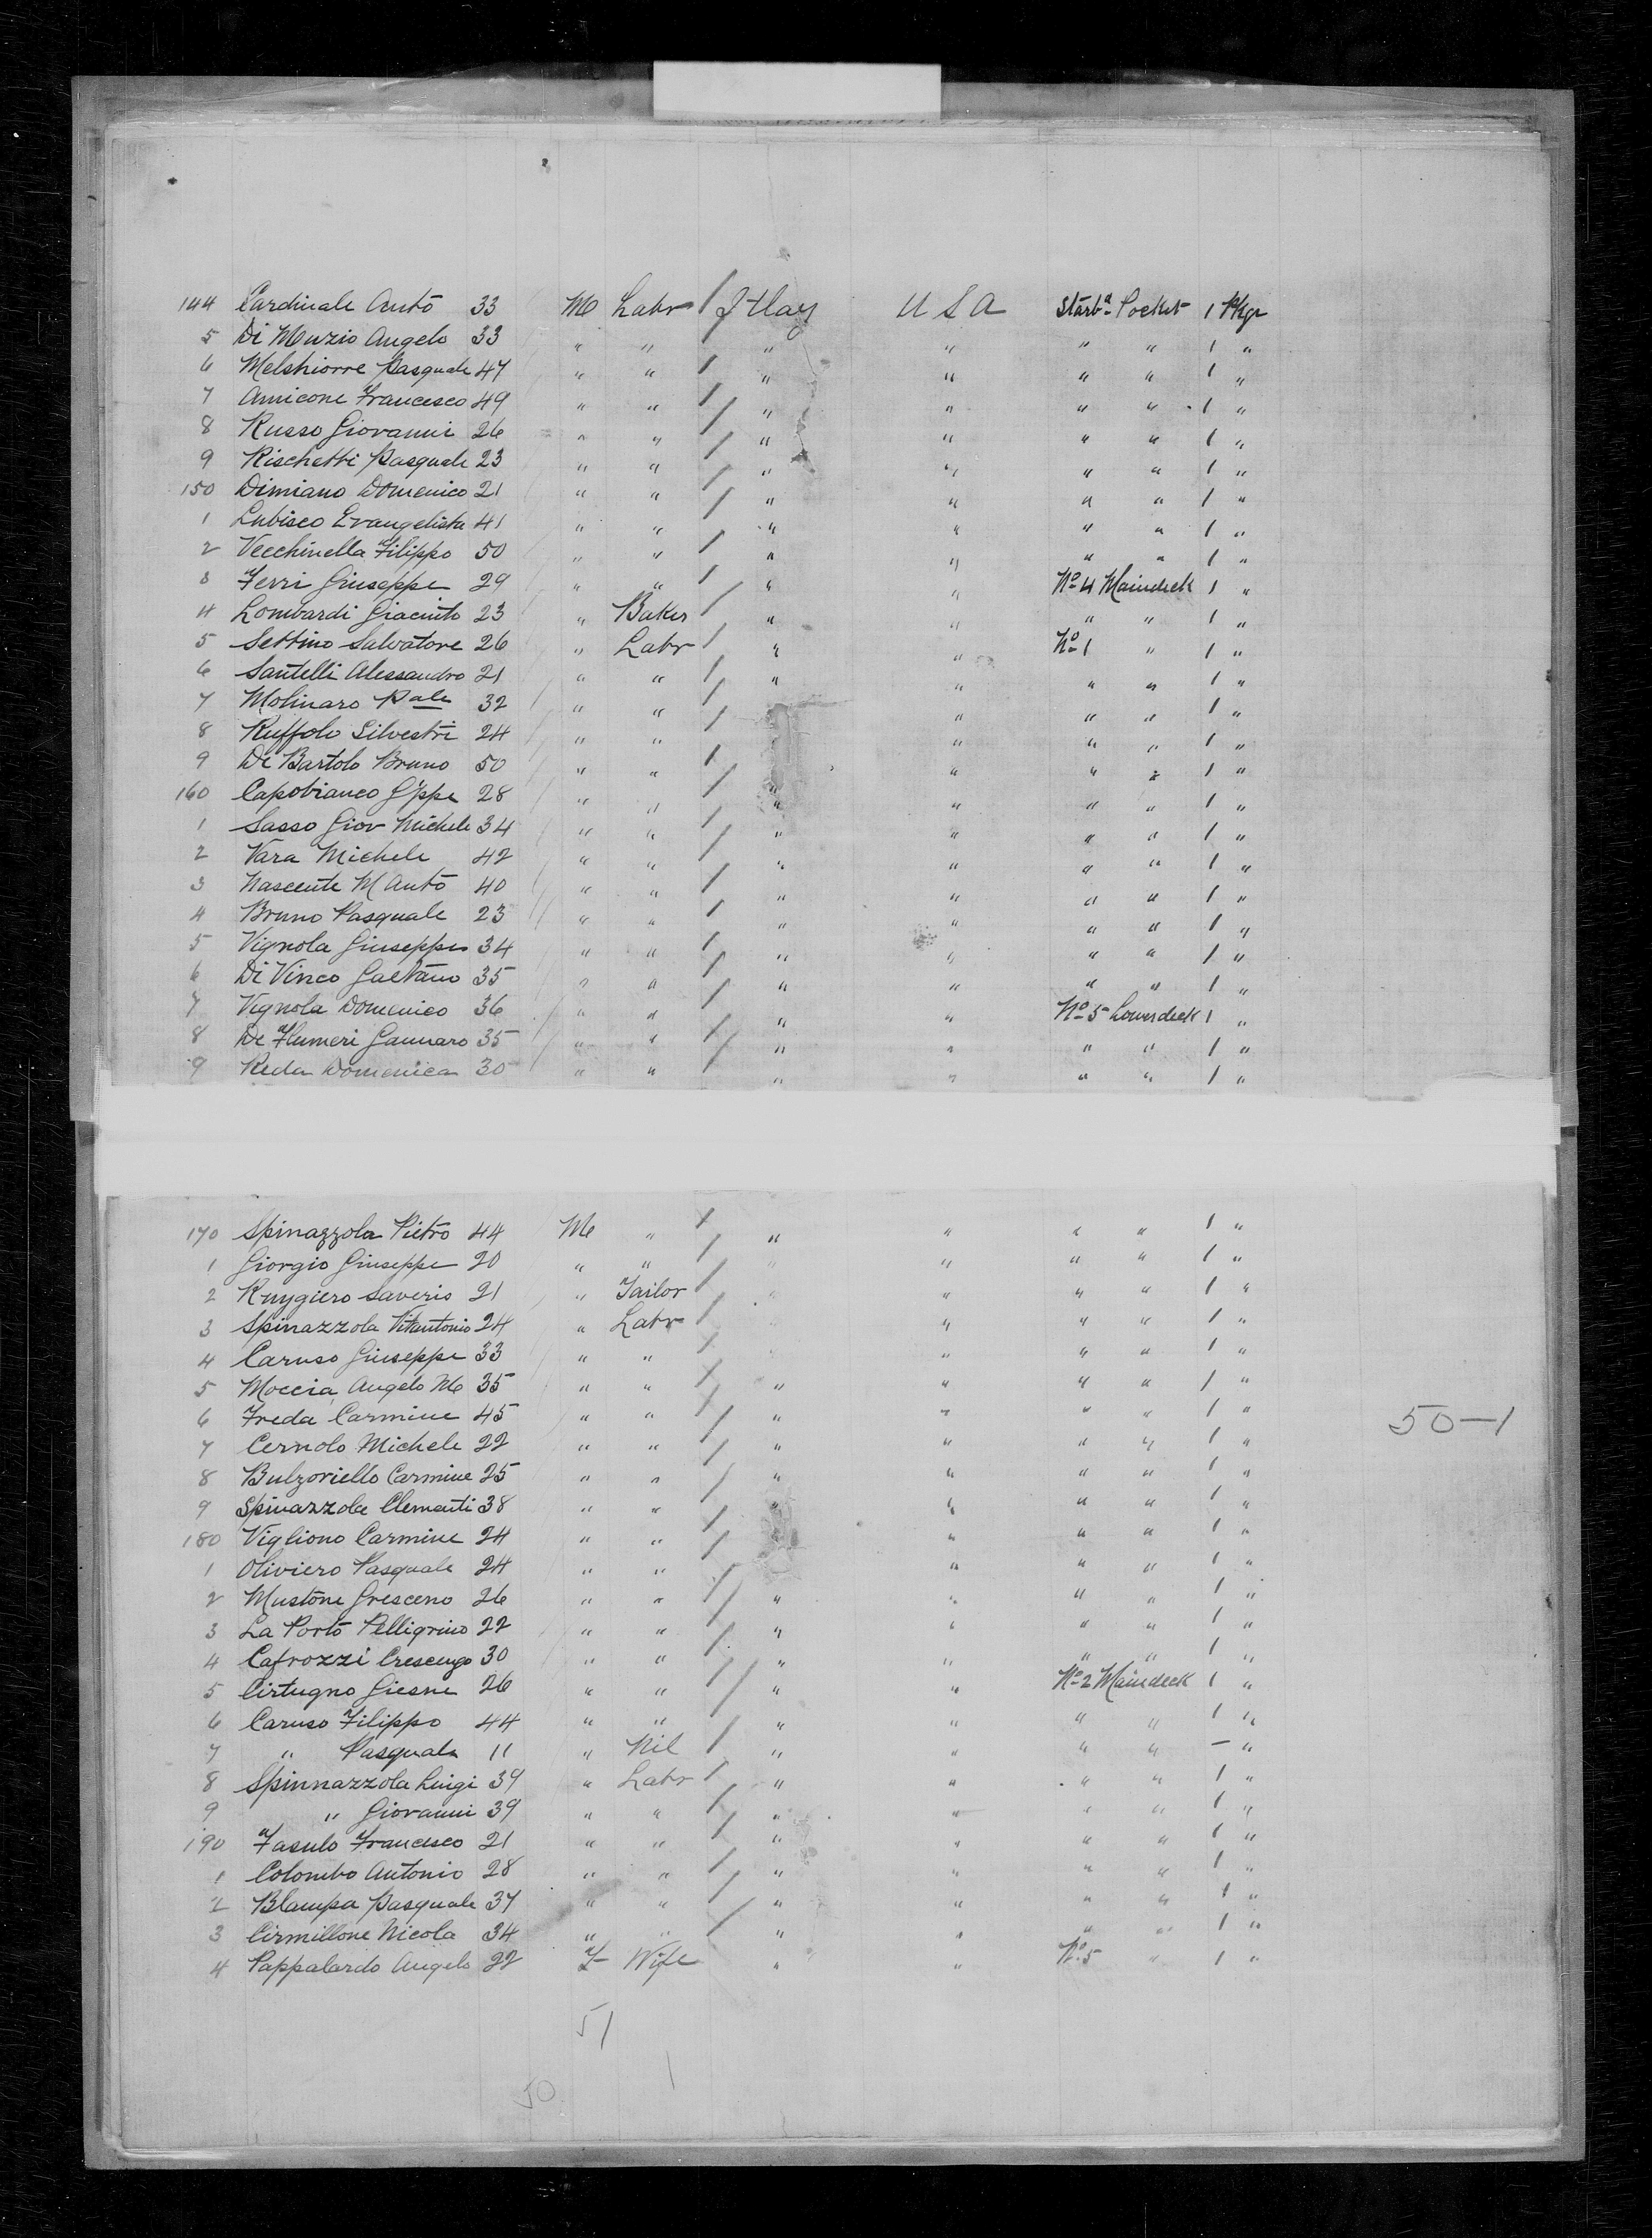 144 Cardinale Anto 33 M Labr / Itlay U S A Starbd Pocket 1 Pkge
5 Di Muzio Angelo 33 " " / " " " " 1 "
6 Melshiorre Pasquale 47 " " / " " " " 1 "
7 Amicone Francesco 49 " " / " " " " 1 "
8 Russo Giovanni 26 " " / " " " " 1 "
9 Rischetti Pasquale 23 " " / " " " " 1 "
150 Dimiano Domenico 21 " " / " " " " 1 "
1 Lubisco Evangelista 41 " " / " " " " 1 "
2 Vecchinella Filippo 50 " " / " " " " 1 "
3 Ferri Giuseppe 29 " " / " " No 4 Maindeck 1 "
4 Lombardi Giacinto 23 " Baker / " " " " 1 "
5 Settino Salvatore 26 " Labr / " " No 1 " 1 "
6 Santelli Alessandro 21 " " / " " " " 1 "
7 Molinaro Pale 32 " " / " " " " 1 "
8 Ruffolo Silvestri 24 " " / " " " " 1 "
9 De Bartolo Bruno 50 " " / " " " " 1 "
160 Capobianco G'ppe 28 " " / " " " " 1 "
1 Sasso Giov Michele 34 " " / " " " " 1 "
2 Vara Michele 42 " " / " " " " 1 "
3 Nascente M Anto 40 " " / " " " " 1 "
4 Bruno Pasquale 23 " " / " " " " 1 "
5 Vignola Giuseppe 34 " " / " " " " 1 "
6 Di Vinco Gaetano 35 " " / " " " " 1 "
7 Vignola Domenico 36 " " / " " No 5 Lowerdeck 1 "
8 De Flumeri Gannaro 35 " " / " " " " 1 "
9 Reda Domenica 30 " " / " " " " 1 "
170 Spinazzola Pietro 44 M " / " " " " 1 "
1 Giorgio Giuseppe 20 " " / " " " " 1 "
2 Ruggiero Saverio 21 " Tailor / " " " " 1 "
3 Spinazzola Vitantonio 24 " Labr / " " " " 1 "
4 Caruso Giuseppe 33 " " / " " " " 1 "
5 Moccia Angelo M 35 " " / " " " " 1 "
6 Freda Carmine 45 " " / " " " " 1 "
50-1
7 Cernolo Michele 22 " " / " " " " 1 "
8 Bulzoriello Carmine 25 " " / " " " " 1 "
9 Spinazzola Clementi 38 " " / " " " " 1 "
180 Vigliono Carmine 24 " " / " " " " 1 "
1 Oliviero Pasquale 24 " " / " " " " 1 "
2 Mustone Gresceno 26 " " / " " " " 1 "
3 La Porto Pelligrino 22 " " / " " " " 1 "
4 Cafrozzi Crescenzo 30 " " / " " " " 1 "
5 Cirtugno Giesne 26 " " / " " No 2 Maindeck 1 "
6 Caruso Filippo 44 " " / " " " " 1 "
7 " Pasquale 11 " Nil / " " " " — "
8 Spinnazzola Luigi 39 " Labr / " " " " 1 "
9 " Giovanni 39 " " / " " " " 1 "
190 Fasulo Francesco 21 " " / " " " " 1 "
1 Colombo Antonio 28 " " / " " " " 1 "
2 Blampa Pasquale 37 " " / " " " " 1 "
3 Cirmillone Nicola 34 " " / " " " " 1 "
4 Pappalardo Angelo 22 F Wife " " No 5 " 1 "
51
1
50